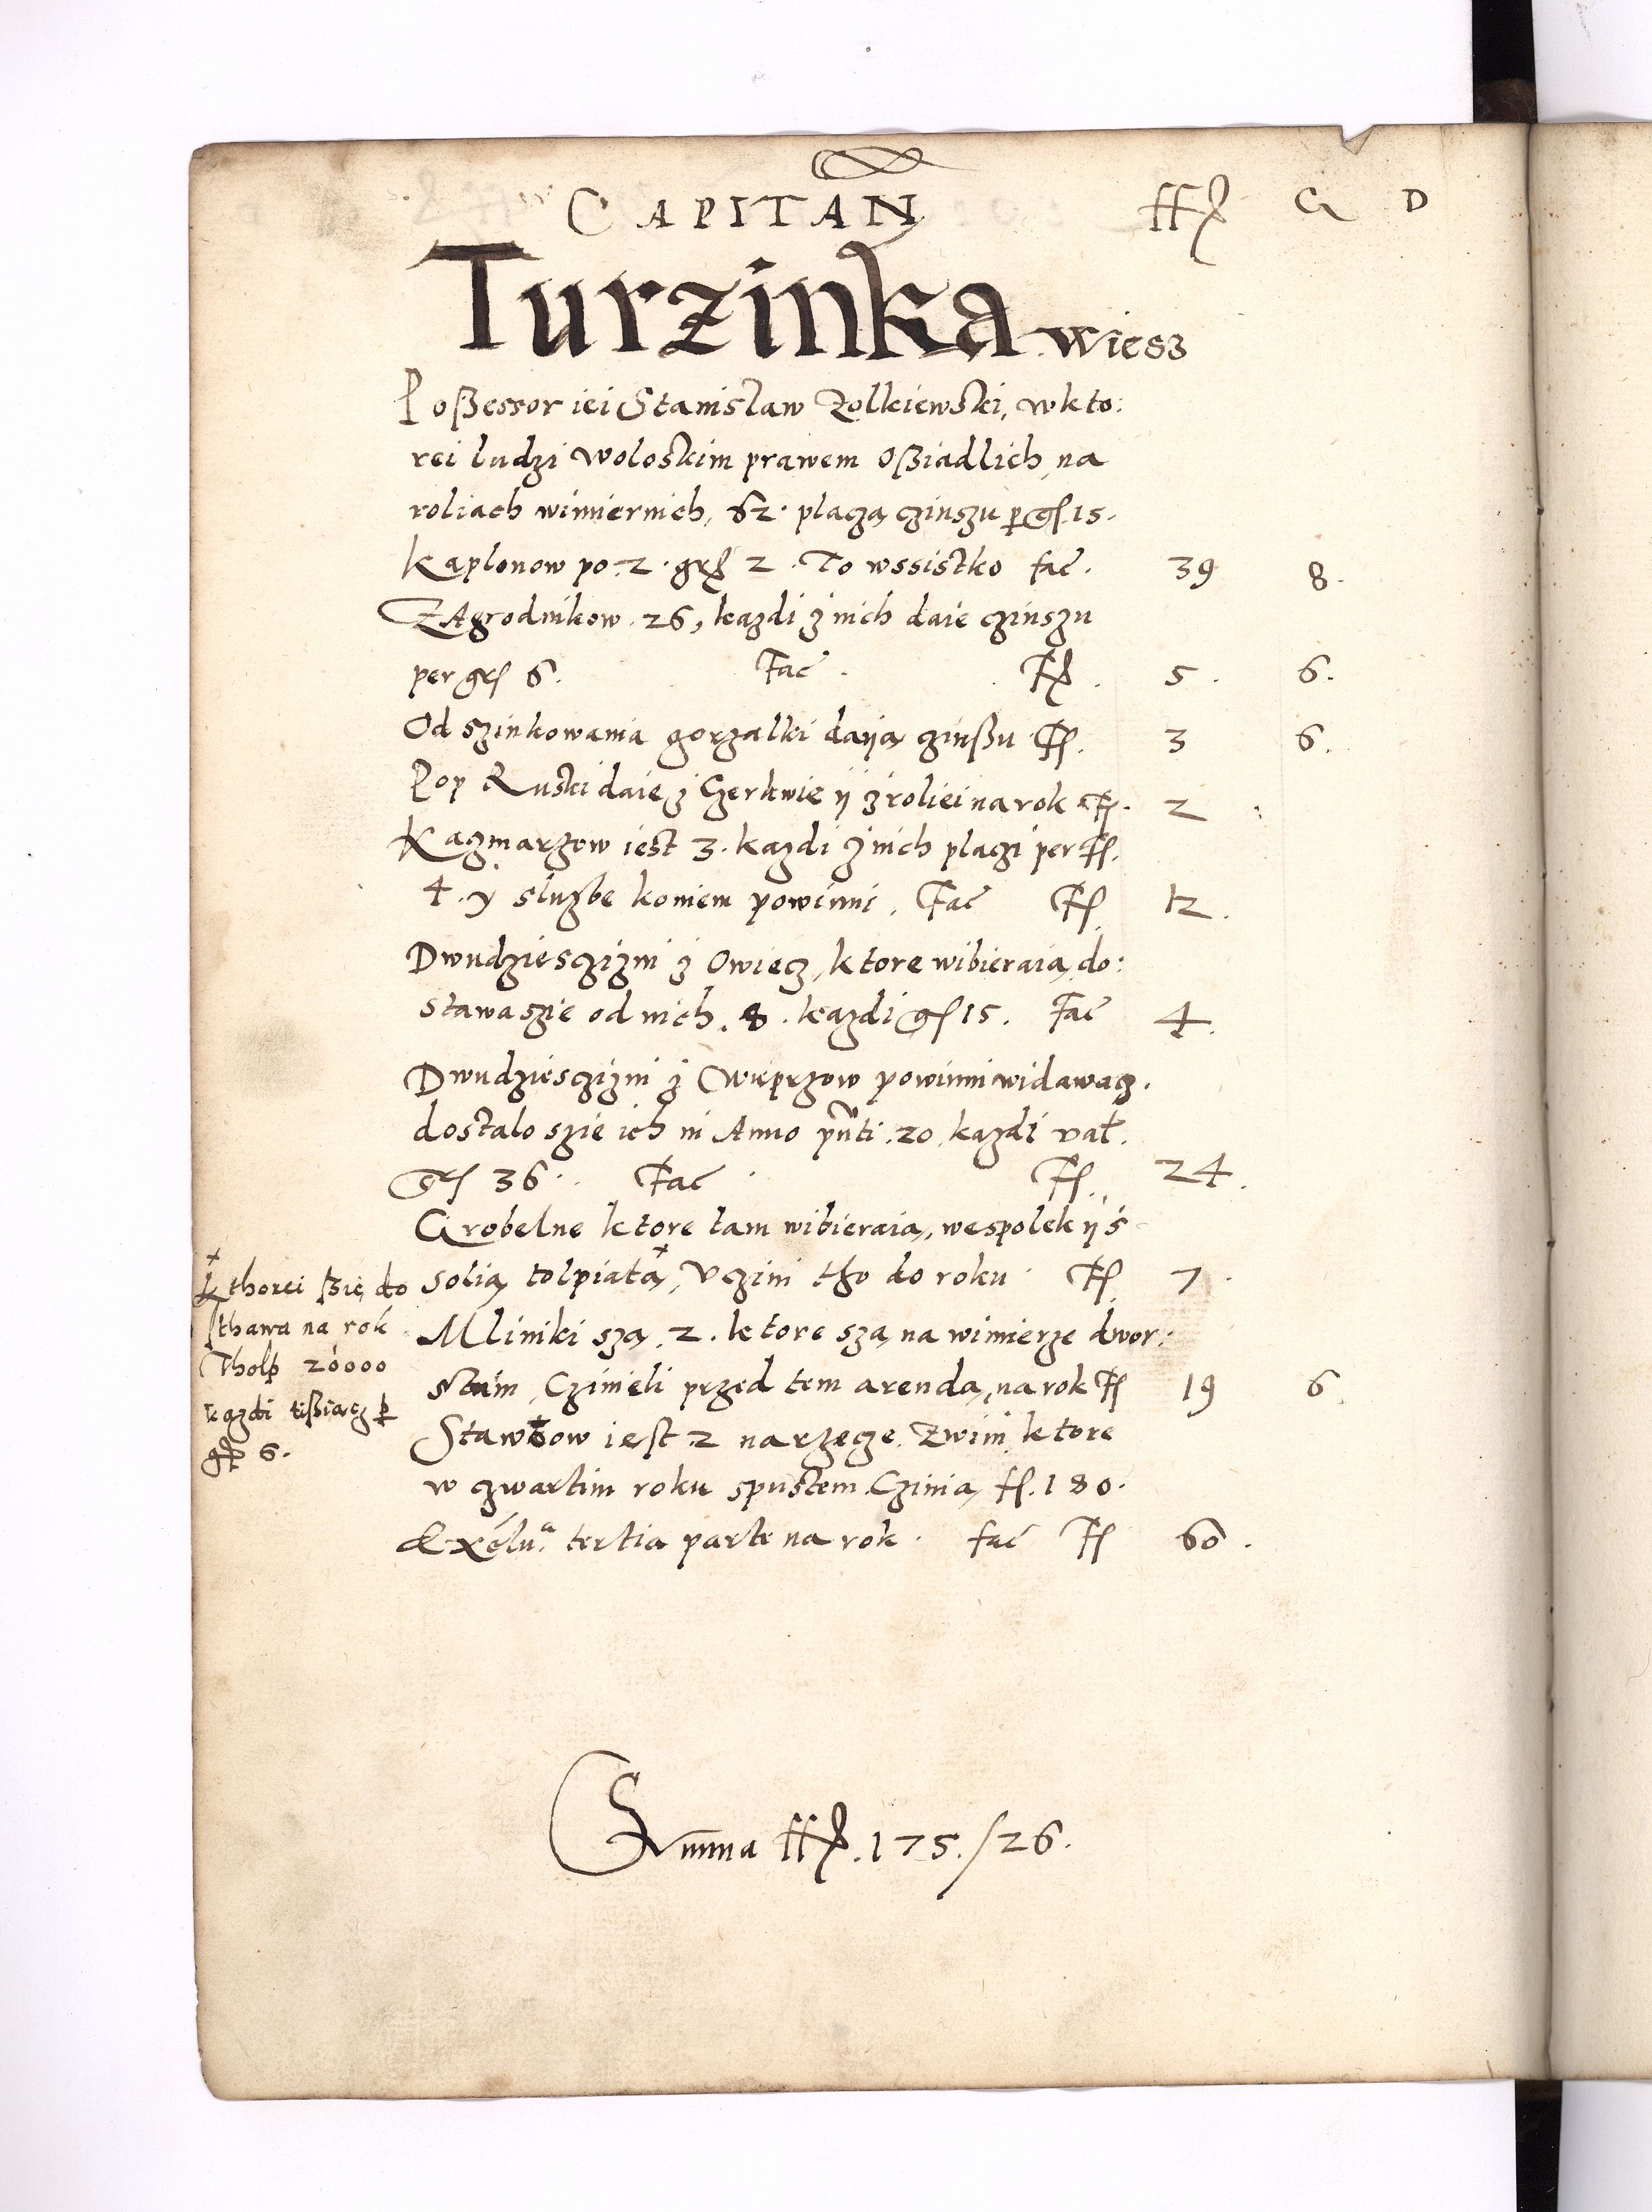 CAPITAN ff G D
Turzinka wiesz
Poßessor iei Stanislaw Zolkiewski, w kto:
rei ludzi woloskim prawem oßiadlich na
roliach wimiernich, 62. placzą czinszu per gs 15.
Kaplonow po. 2. grs 2. To wssistko fac. 39 8.
ZAgrodnikow. 26, kazdi z nich daie czinszu
per grs 6. Fac. Ff. 5. 6.
Od szinkowania gorzalki daiją czinßu Ff. 3 6.
Pop Ruski daie z Czerkwie ij z roliei na rok Ff. 2
Kaczmarzow iest 3. kazdi z nich placzi per Ff.
4. y sluzbe koniem powinni. Fac Ff 12.
Dwudziesczizni z Owiecz, ktore wibieraią, do:
stawa szie od nich. 8. kazdi gs 15. Fac 4.
Dwudziesczizni z Wieprzow powinni widawacz.
dostalo szie ich in Anno pñti. 20. kazdi val.
grs 36. Fac Ff. 24.
Grobelne ktore tam wibieraią, wespolek ij s
solią tolpiatą, Uczini tho do roku Ff 7.
Mliniki są. 2. ktore są na wimierze dwor:
skim, Czinieli przed tem arendą, na rok Ff 19 6.
Stawkow iest 2 na rzecze. Zwini ktore
w czwartim roku spustem Czinią ff. 180.
tertia parte na rok. fac Ff 60.
x kthorei ßię do
sthawa na rok
Tholp 20000
kazdi tißiącz per
gs 6.
Summa ff. 175. / 26.